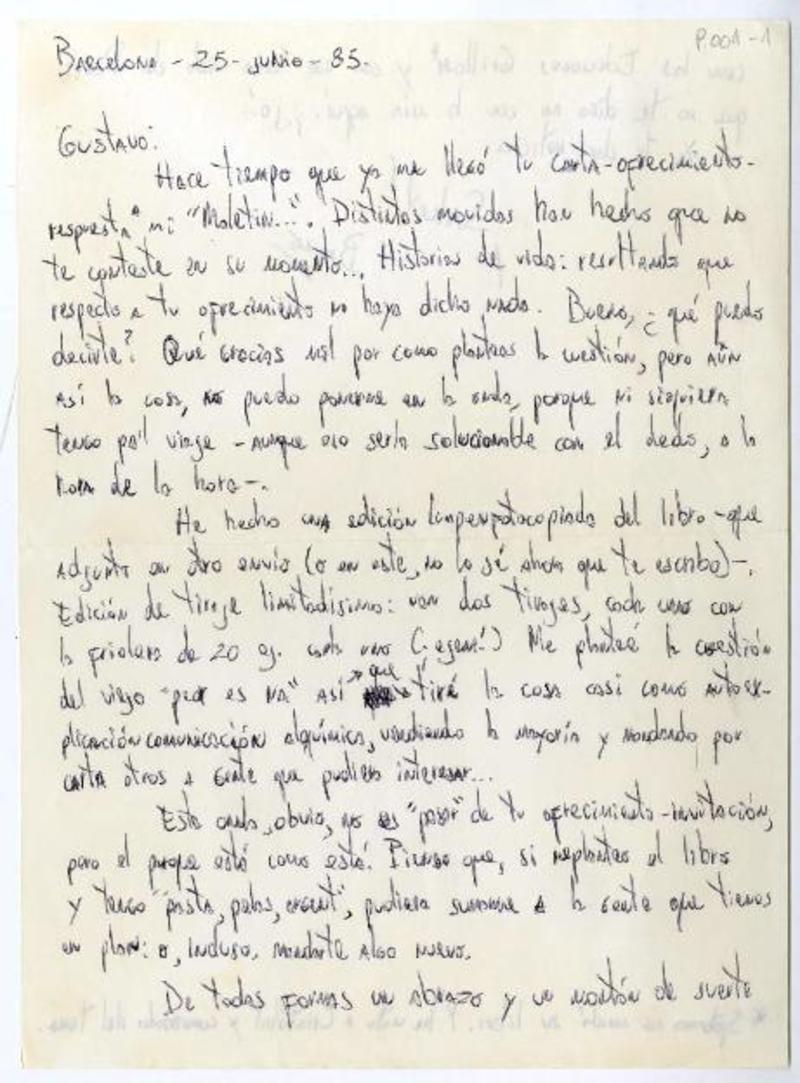 P.001-1
Barcelona - 25 - junio - 85.
Gustavo:
Hace tiempo que ya me llegó tu carta-ofrecimiento-
respuesta a mi "Maletín...". Distintas movidas han hecho que no
te conteste en su momento... Historias de vida: resultando que
respecto a tu ofrecimiento no haya dicho nada. Bueno, ¿qué puedo
decirte? Qué gracias mil por como planteas la cuestión, pero aún
así la cosa, no puedo ponerme en la onda, porque ni siquiera
tengo pa'l viaje - aunque eso sería solucionable con el dedo, a la
hora de la hora-.
He hecho una edición lumpenfotocopiada del libro -que
adjunto en otro envío (o en este, no lo sé ahora que te escribo)-.
Edición de tiraje limitadísimo: van dos tirajes, cada uno con
la friolera de 20 ej. cada uno Me planteé la cuestión
del viejo "peor es na" así que tiré la cosa casi como autoex-
plicación comunicación alquímica, vendiendo la mayoría y mandando por
carta otros a gente que pudiera interesar...
Esta onda, obvio, no es "pasar" de tu ofrecimiento-invitación,
pero el porque está como está. Pienso que, si replanteo el libro
y tengo "pasta, pelas, argent", pudiera sumarme a la gente que tienes
en plan: o, incluso, mandarte algo nuevo.
De todas formas un abrazo y un montón de suerte